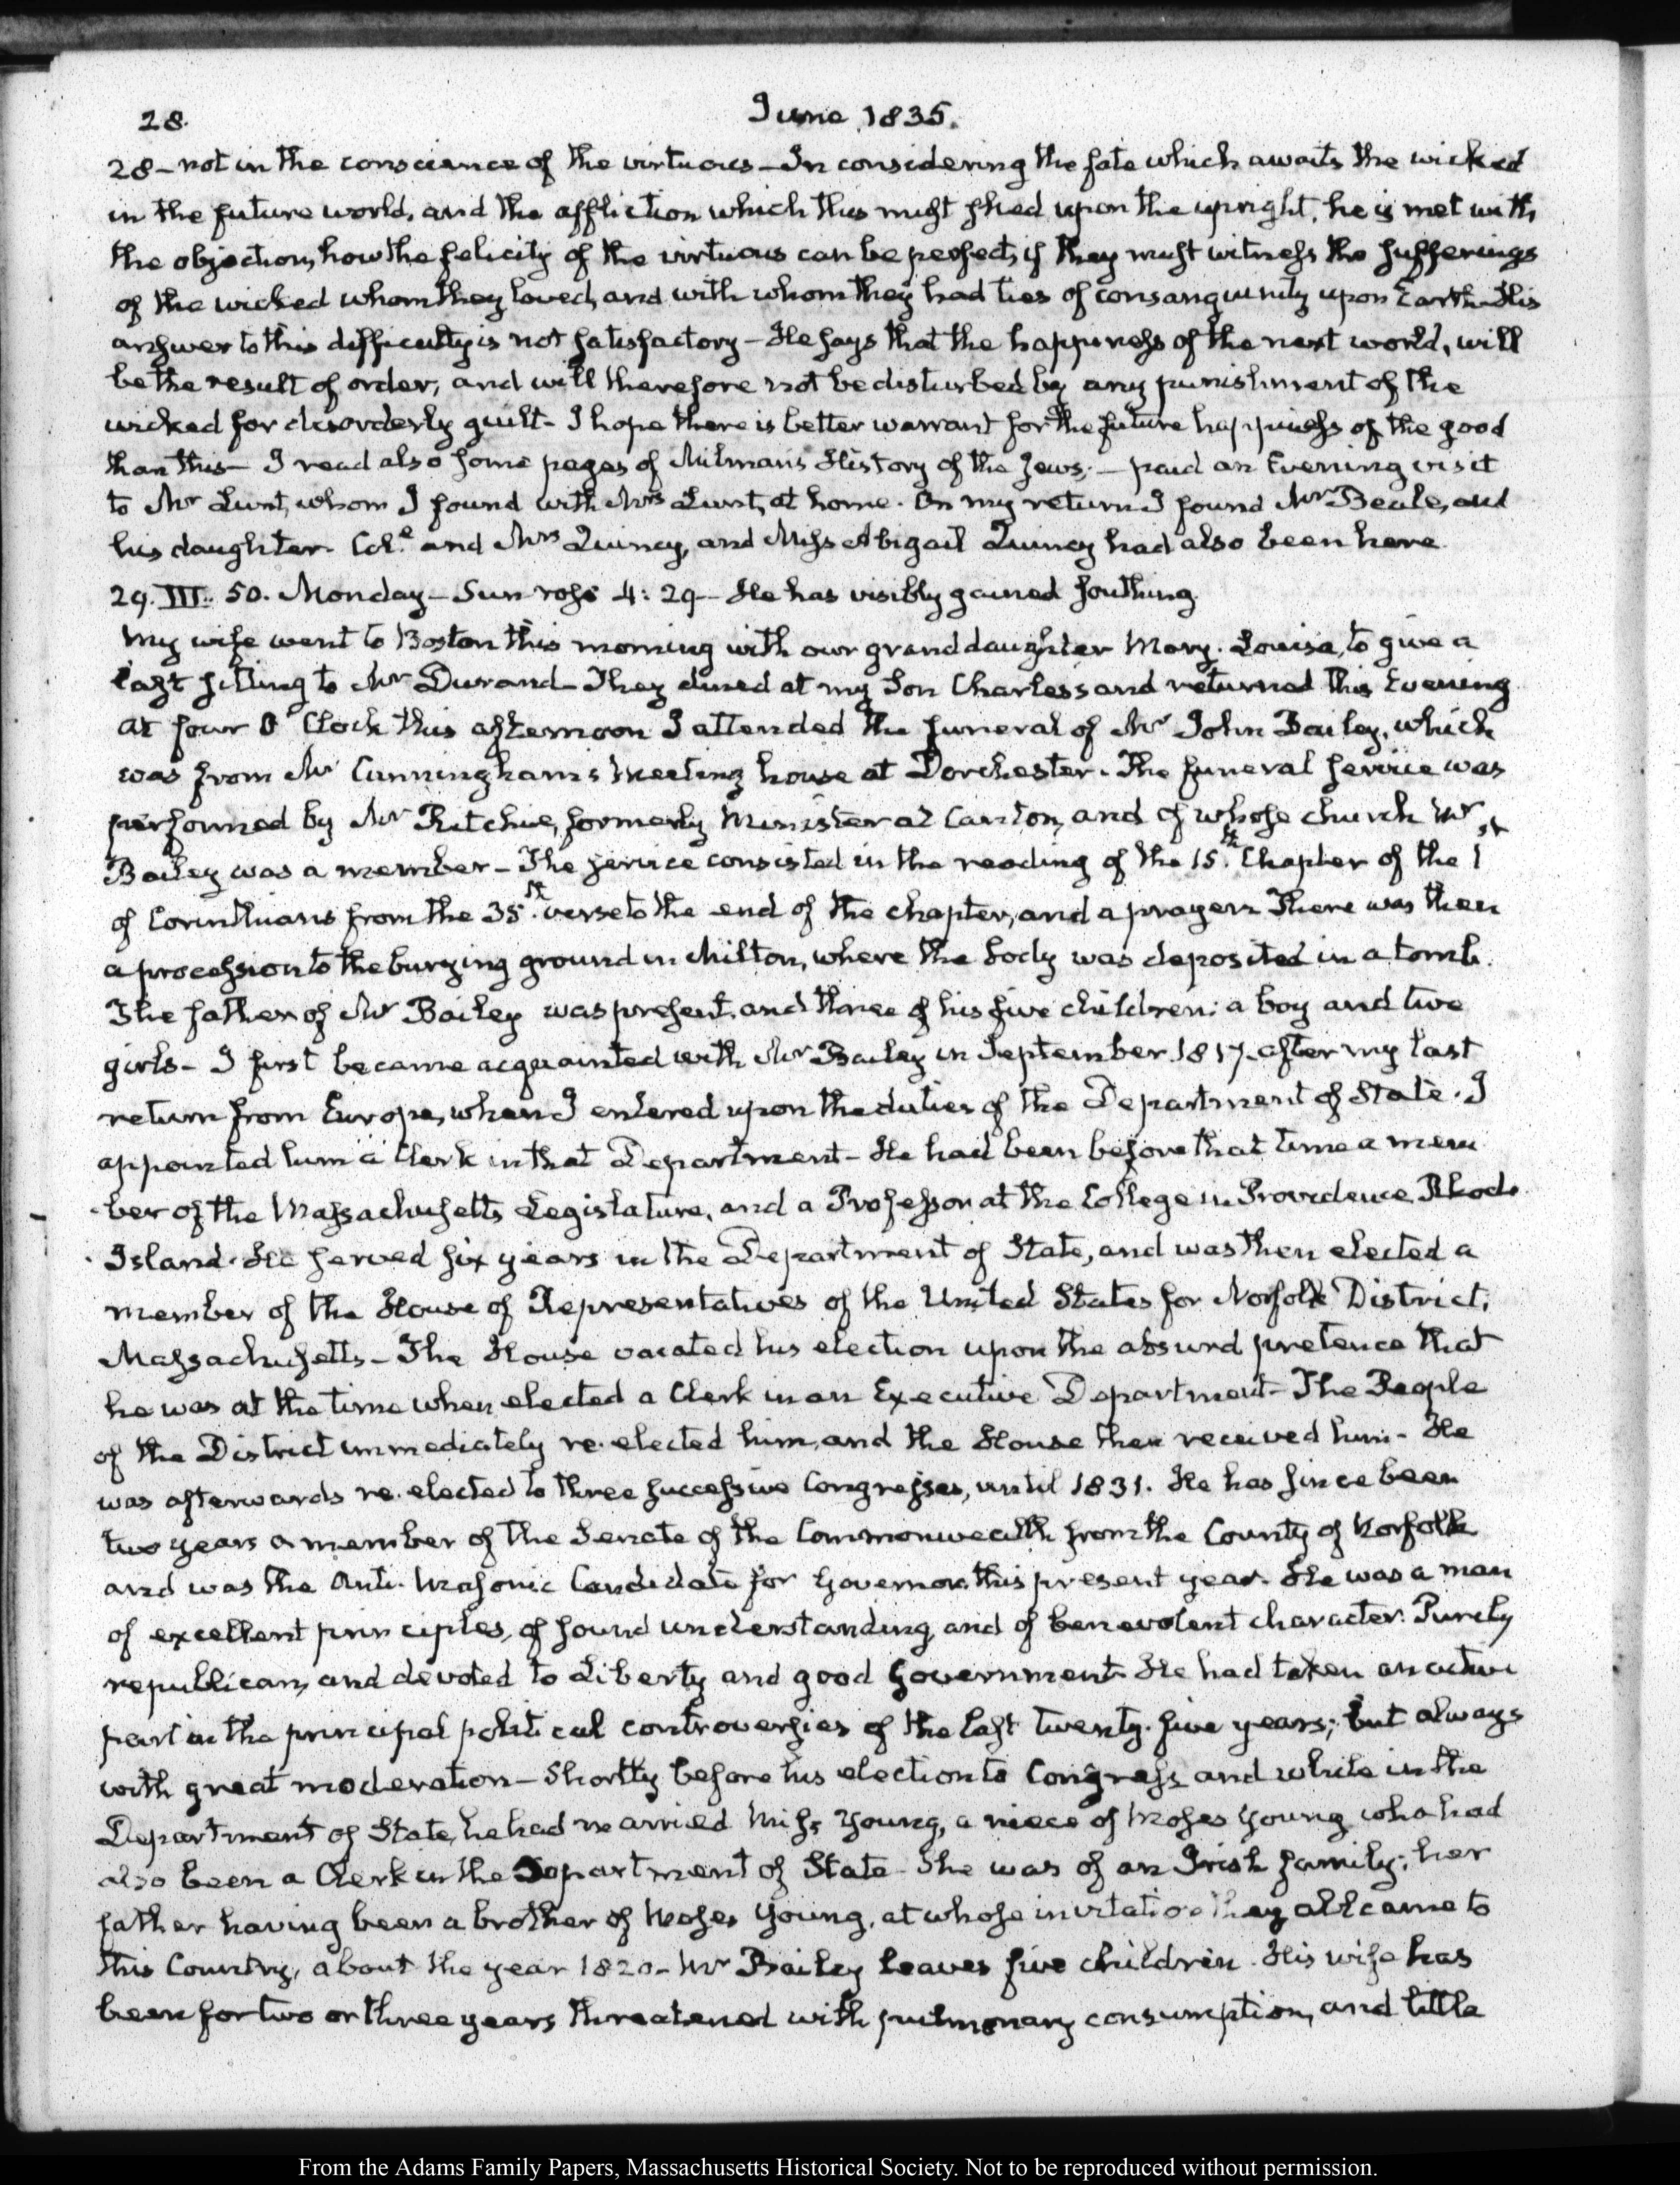 28.
June 1835.
28 – not in the conscience of the virtuous – In considering the fate which awaits the wicked
in the future world, and the affliction which this must shed upon the upright, he is met with
the objection, how the felicity of the virtuous can be perfect, if they must witness the sufferings
of the wicked whom they loved, and with whom they had ties of consanguinity upon Earth – His
answer to this difficulty is not satisfactory – He says that the happiness of the next world, will
be the result of order, and will therefore not be disturbed by any punishment of the
wicked for disorderly guilt – I hope there is better warrant for the future happiness of the good
than this – I read also some pages of Milman's History of the Jews; – paid an Evening visit
to Mr Lunt, whom I found with Mrs Lunt, at home. On my return I found Mr Beale, and
his daughter. Col.l and Mrs Quincy, and Miss Abigail Quincy had also been here.
29. III. 50. Monday – Sun rose 4:29 – He has visibly gained southing.
My wife went to Boston this morning with our granddaughter Mary-Louisa, to give a
last sitting to Mr Durand – They dined at my Son Charles's and returned this Evening
At four O'Clock this afternoon I attended the funeral of Mr John Bailey, which
was from Mr Cunningham's Meeting house at Dorchester. The funeral service was
performed by Mr Ritchie, formerly Minister at Canton, and of whose church Mr
Bailey was a member – The service consisted in the reading of the 15.th Chapter of the 1st
of Corinthians from the 35.th verse to the end of the chapter, and a prayer. There was then
a procession to the burying ground in Milton, where the body was deposited in a tomb.
The father of Mr Bailey was present, and three of his five children: a boy and two
girls – I first became acquainted with Mr Bailey in September 1817. after my last
return from Europe, when I entered upon the duties of the Department of State. I
appointed him a Clerk in that Department – He had been before that time a mem
ber of the Massachusetts Legislature, and a Professor at the College in Providence Rhode
Island. He served six years in the Department of State, and was then elected a
member of the House of Representatives of the United States for Norfolk District,
Massachusetts – The House vacated his election upon the absurd pretence that
he was at the time when elected a Clerk in an Executive Department – The People
of the District immediately re-elected him, and the House then received him – He
was afterwards re-elected to three successive Congresses, until 1831. He has since been
two years a member of the Senate of the Commonwealth from the County of Norfolk
and was the Anti-Masonic Candidate for Governor this present year. He was a man
of excellent principles, of sound understanding, and of benevolent character. Purely
republican, and devoted to Liberty and good Government. He had taken an active
part in the principal political controversies of the last twenty-five years; but always
with great moderation – Shortly before his election to Congress, and while in the
Department of State, he had married Miss Young, a niece of Moses Young who had
also been a Clerk in the Department of State – She was of an Irish family; her
father having been a brother of Moses Young, at whose invitation they all came to
this Country, about the year 1820 – Mr Bailey leaves five children. His wife has
been for two or three years threatened with pulmonary consumption, and little
From the Adams Family Papers, Massachusetts Historical Society. Not to be reproduced without permission.